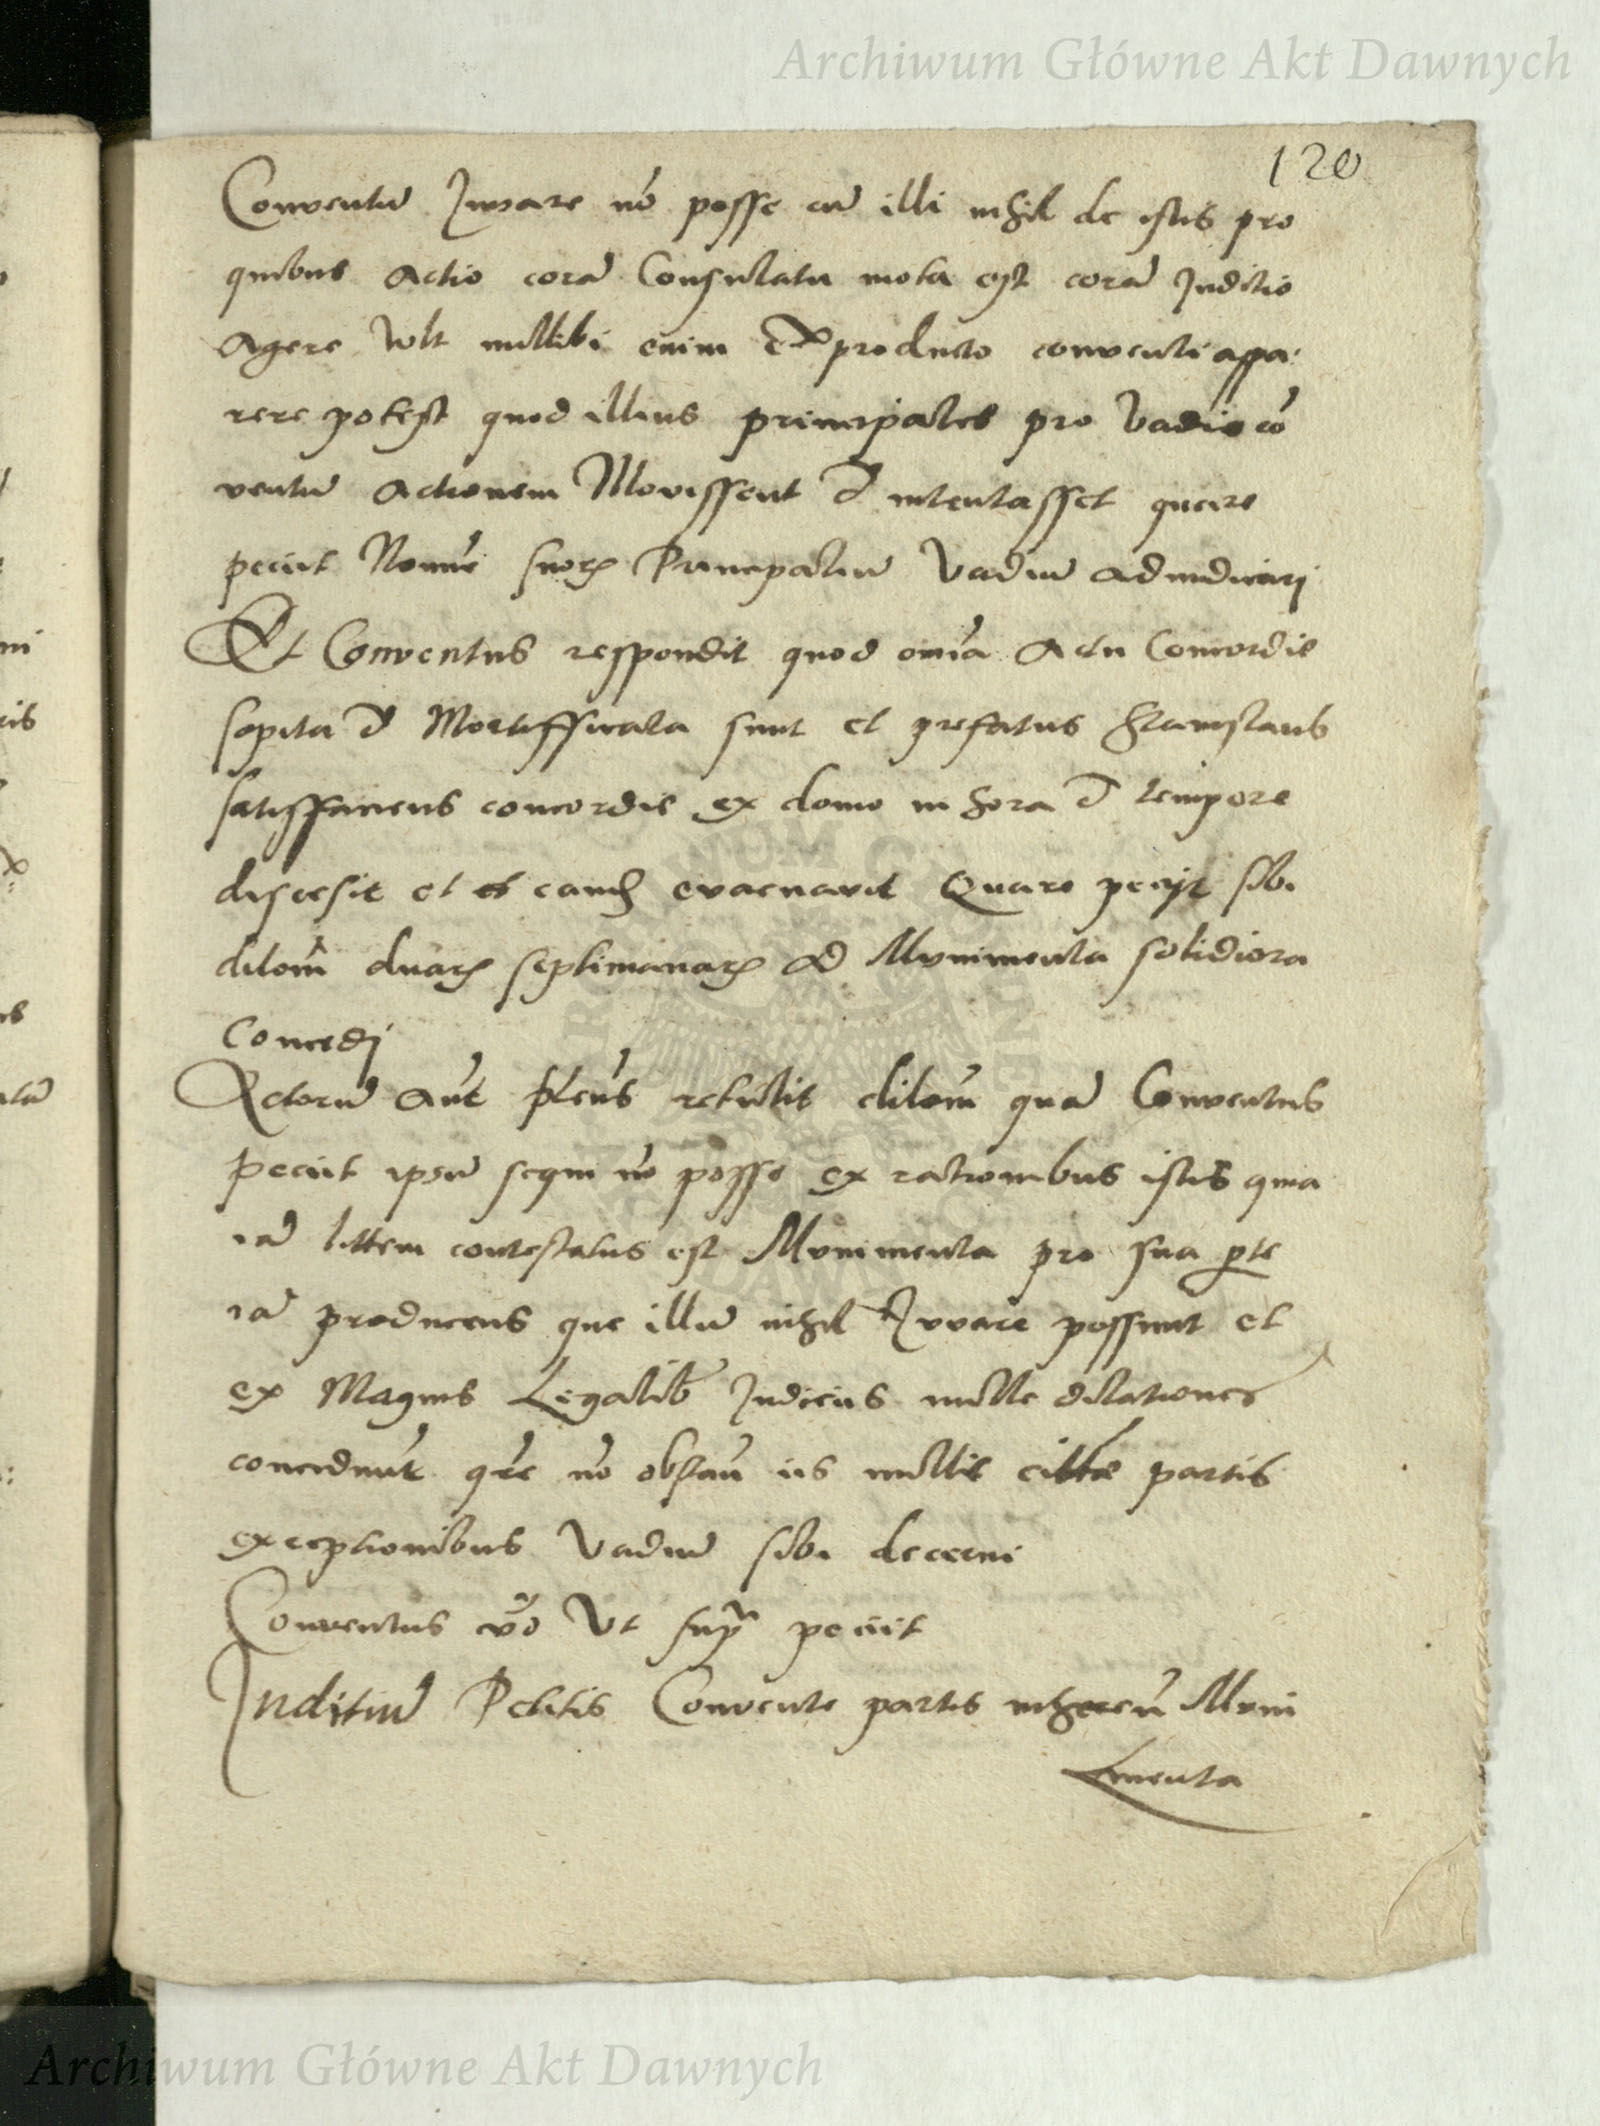 Archiwum Główne Akt Dawnych
120
Conventū Juvare nō posse cū illi nihil de istis pro
quibus Actio corā Consulatu mota est corā Juditio
Agere Vult nullibi enim Ex producto conventi appa
rere potest quod illius principales pro Vadio cō
ventū Actionem Movissent & intentasset quare
peciit Nomīe suorꝝ Principaliū Vadiū Adiudicari
Et Conventus respondit quod om̄ia Actu Concordie
sopita & Mortifficata sunt et prefatus Stanislaus
satisffaciens concordie ex domo in hora & tempore
discesit et eandē evacuavit Quare peciit sibi
dilom̄ duarꝝ septimanarꝝ Ad Munimenta solidiora
Concedi
Actorū Aūt pleūs retulit dilom̄ quā Conventus
peciit ipsū sequi nō posse ex rationibus istis quia
iā littem contestatus est Munimenta pro sua ꝑte
iā producens que illū nihil Juvare possunt et
ex Magnis Legalib Judiciis nulle dilationes
conceduūt qre nō obstañ iis nullis partis
exceptionibus Vadiū sibi decerni
Conventus v̄o Ut supra peciit
Juditiū Petitis Convente partis inhereñ Muni
menta
Archiwum Główne Akt Dawnych